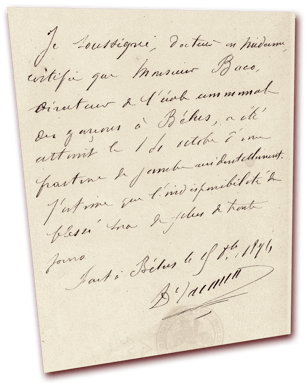 Je soussigné, docteur en médecine,
certifie que Monsieur Baco,
Directeur de l'école communale
des garçons à Bélus, a été
atteint le 1er octobre d'une
fracture de jambe accidentellement.
J'estime que l'indisponibilité du
blessé sera de plus de trente
jours
Fait à Bélus le 15 8bre 1894
Dr